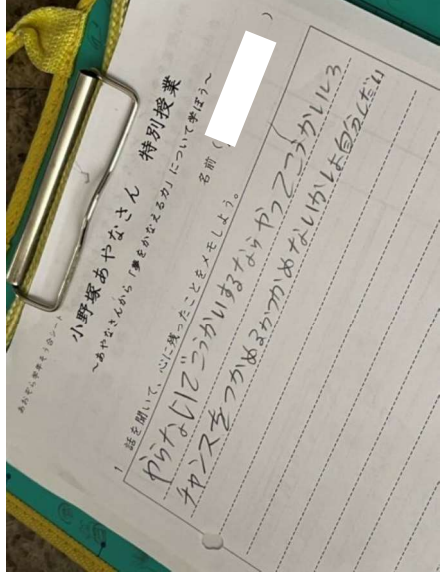 あおぞら学年そう合シート
小野塚あやなさん 特別授業
～あやなさんから「夢をかなえる力」について学ぼう～
名前( )
1 話を聞いて、心に残ったことをメモしよう。
やらないでこうかいするならやってこうかいしろ
チャンスをつかめるかつかめないかは自分しだい